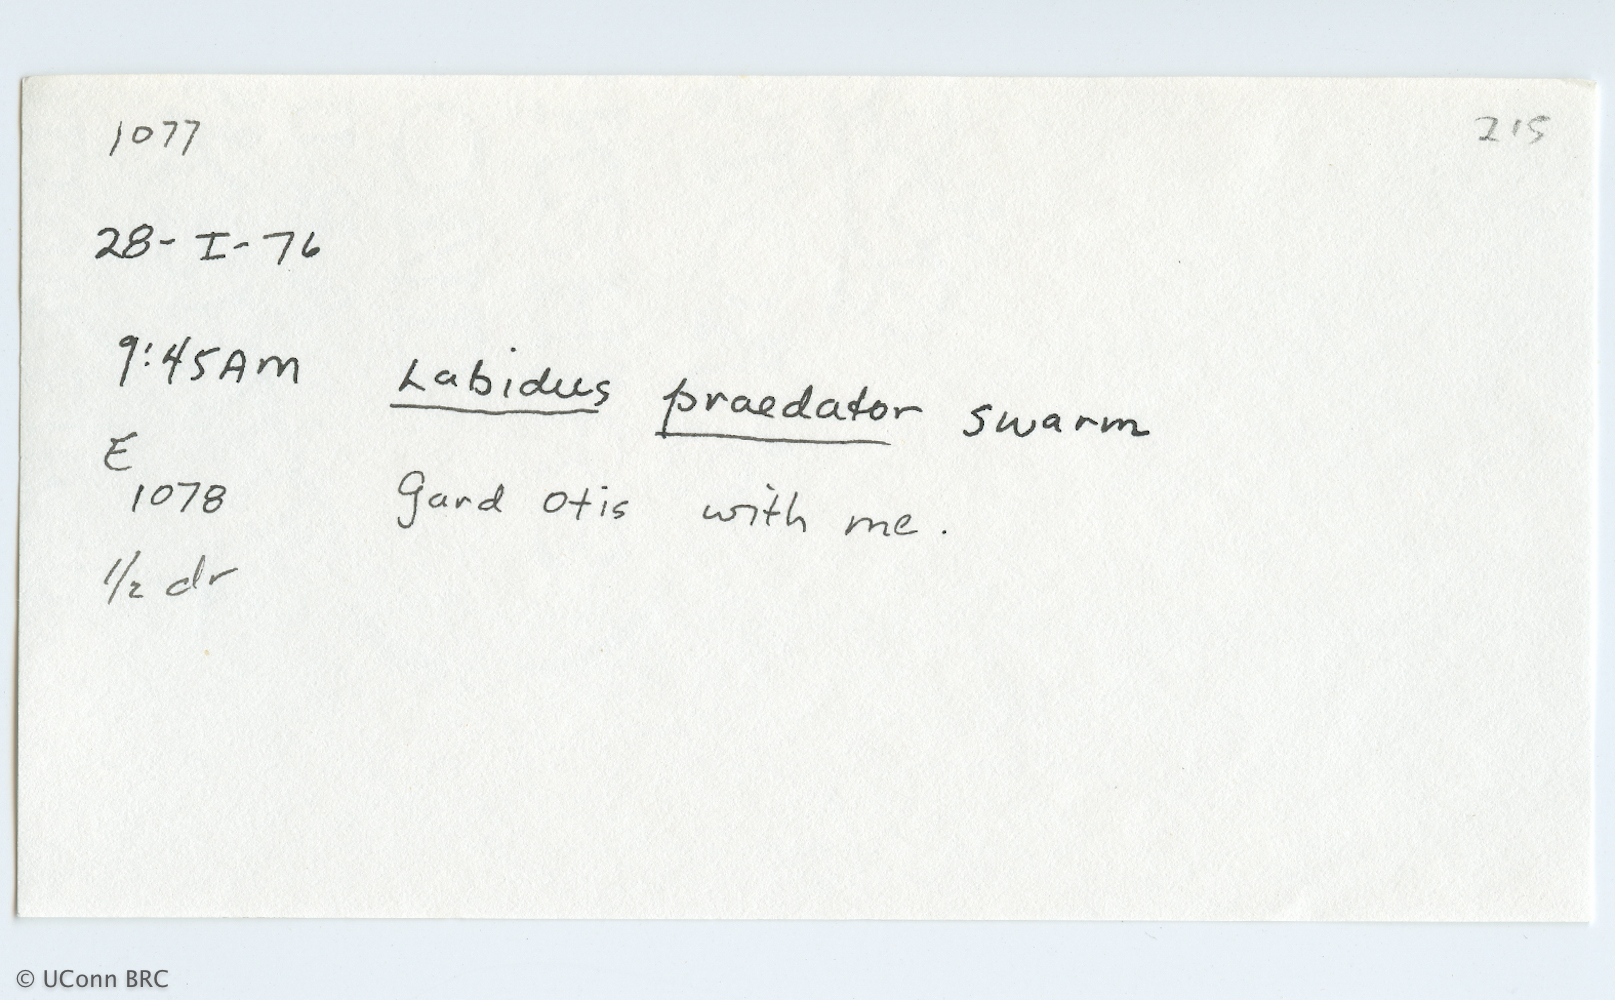 1077 215
28-I-76
9:45AM Labidus praedator swarm
E
1078 Gard Otis with me.
1/2 dr
© UConn BRC